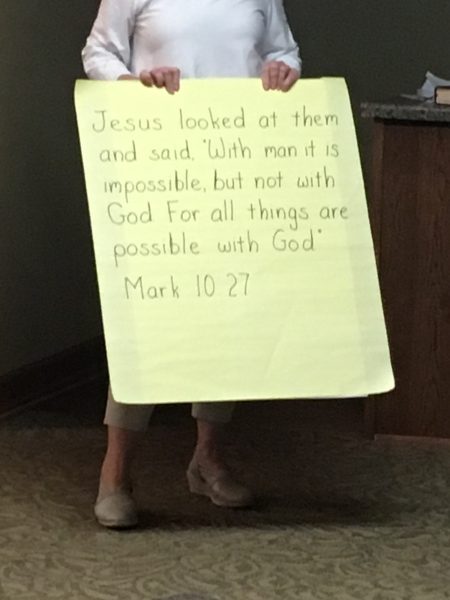 Jesus looked at them
and said, "With man it is
impossible, but not with
God For all things are
possible with God"
Mark 10 27